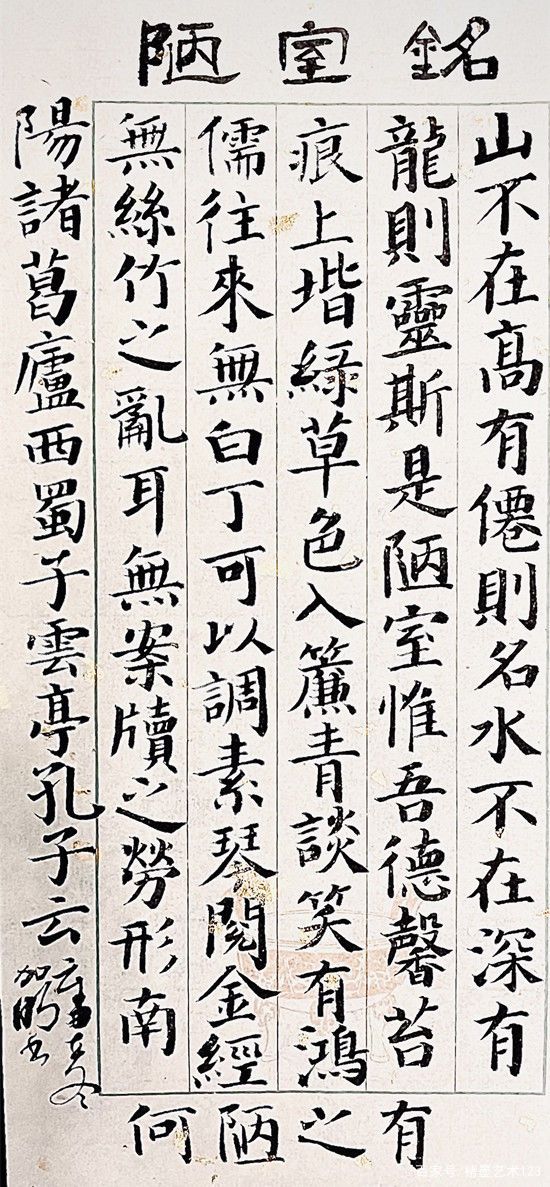 陋室銘
山不在髙有僊則名水不在深有
龍則靈斯是陋室惟吾德馨苔
痕上堦綠草色入簾青談笑有鴻
儒往來無白丁可以調素琴閱金經
無絲竹之亂耳無案牘之勞形南
陽諸葛廬西蜀子雲亭孔子云
何陋之有
百家号/墨艺术123